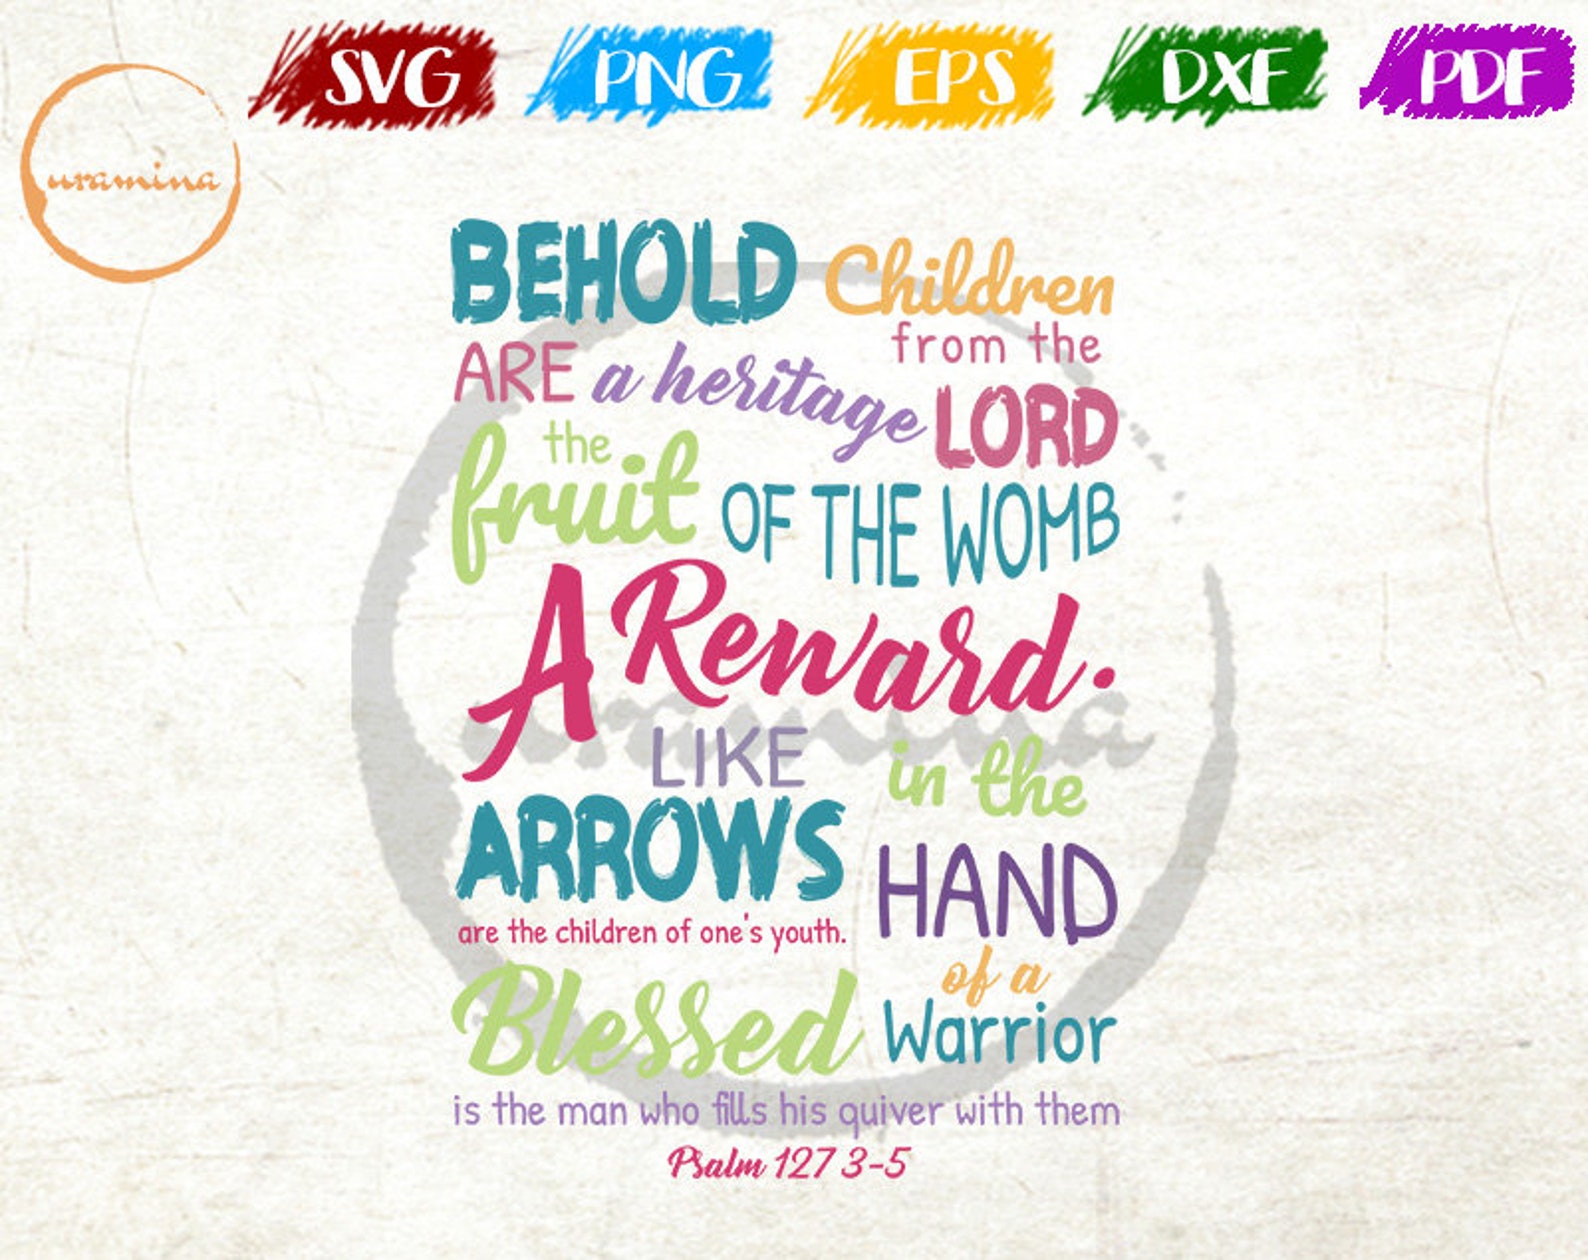 SVG PNG EPS DXF PDF
uramina
BEHOLD Children
ARE a heritage from the
LORD
the
fruit OF THE WOMB
A Reward.
LIKE
ARROWS in the
HAND
are the children of one's youth.
of a
Blessed Warrior
is the man who fills his quiver with them
Psalm 127 3-5
uramina